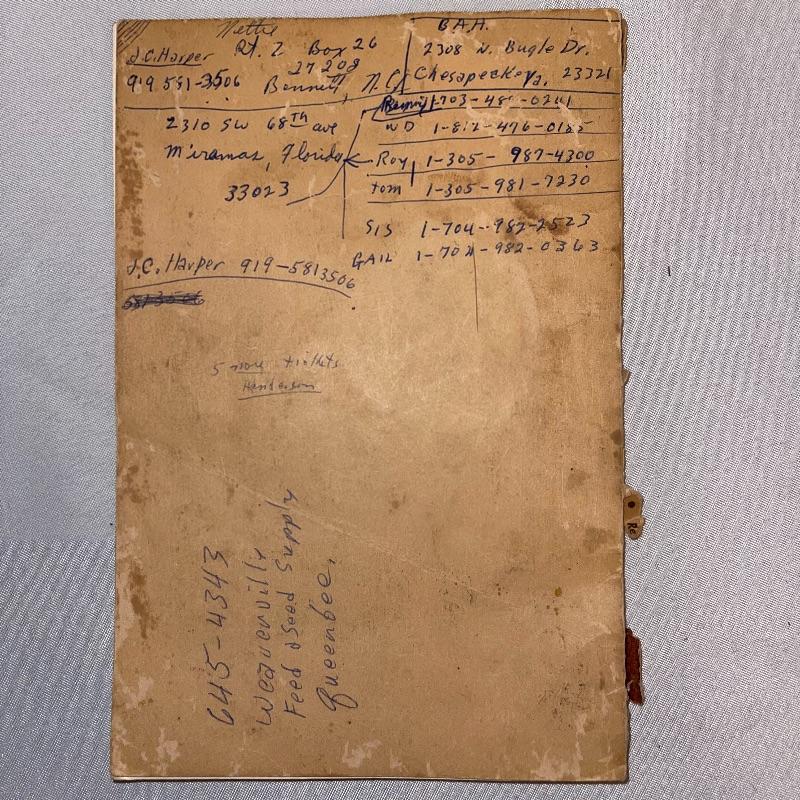 Nettie
J.C. Harper Rt. 2 Box 26
27208
919 581-3506 Bennett, N.C.
B.A.H.
2308 N. Bugle Dr.
Chesapeck Va. 23321
2310 SW 68TH ave
Miramas, Florida
33023
1-703-48
ND 1-812-476-0185
Roy 1-305-987-4300
Tom 1-305-981-7230
SIS 1-704-982-2523
GAIL 1-704-982-0363
J.C. Harper 919-5813506
5 more
Henderson
645-4343
Weaverville
Feed & Seed Supply
Queenbee.
Re